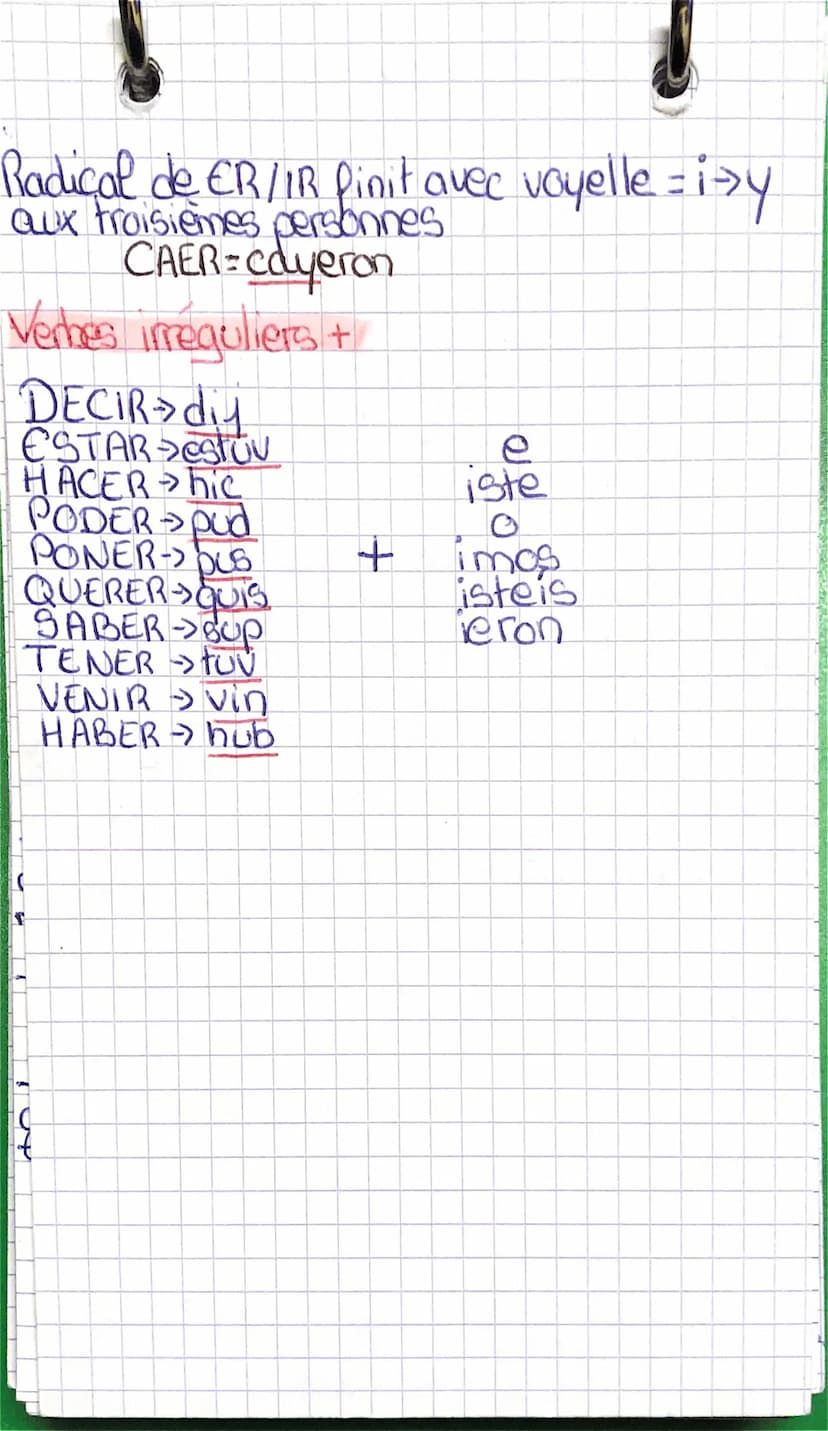 Radical de ER/IR finit avec voyelle = i → y
aux troisièmes personnes
CAER = cayeron
Verbes irréguliers +
DECIR → dij
ESTAR → estuv
HACER → hic
PODER → pud
PONER → pus
QUERER → quis
SABER → sup
TENER → tuv
VENIR → vin
HABER → hub
+
e
iste
o
imos
isteis
ieron